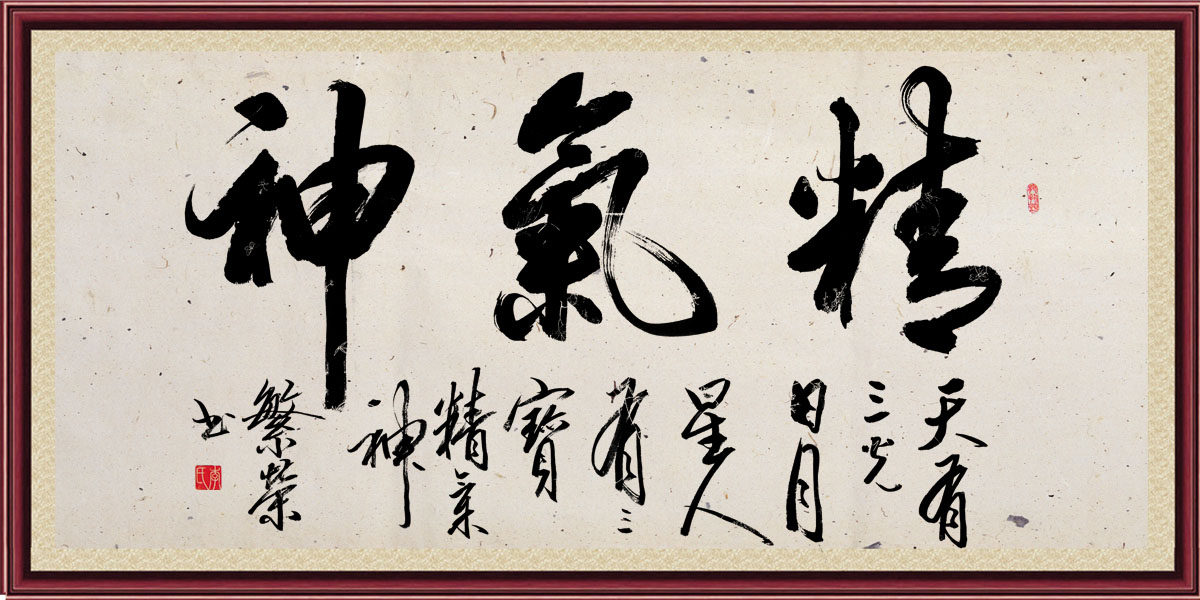 精氣神
天有
三光
日月
星人
有三
寶
精氣
神
繁榮
书
李氏